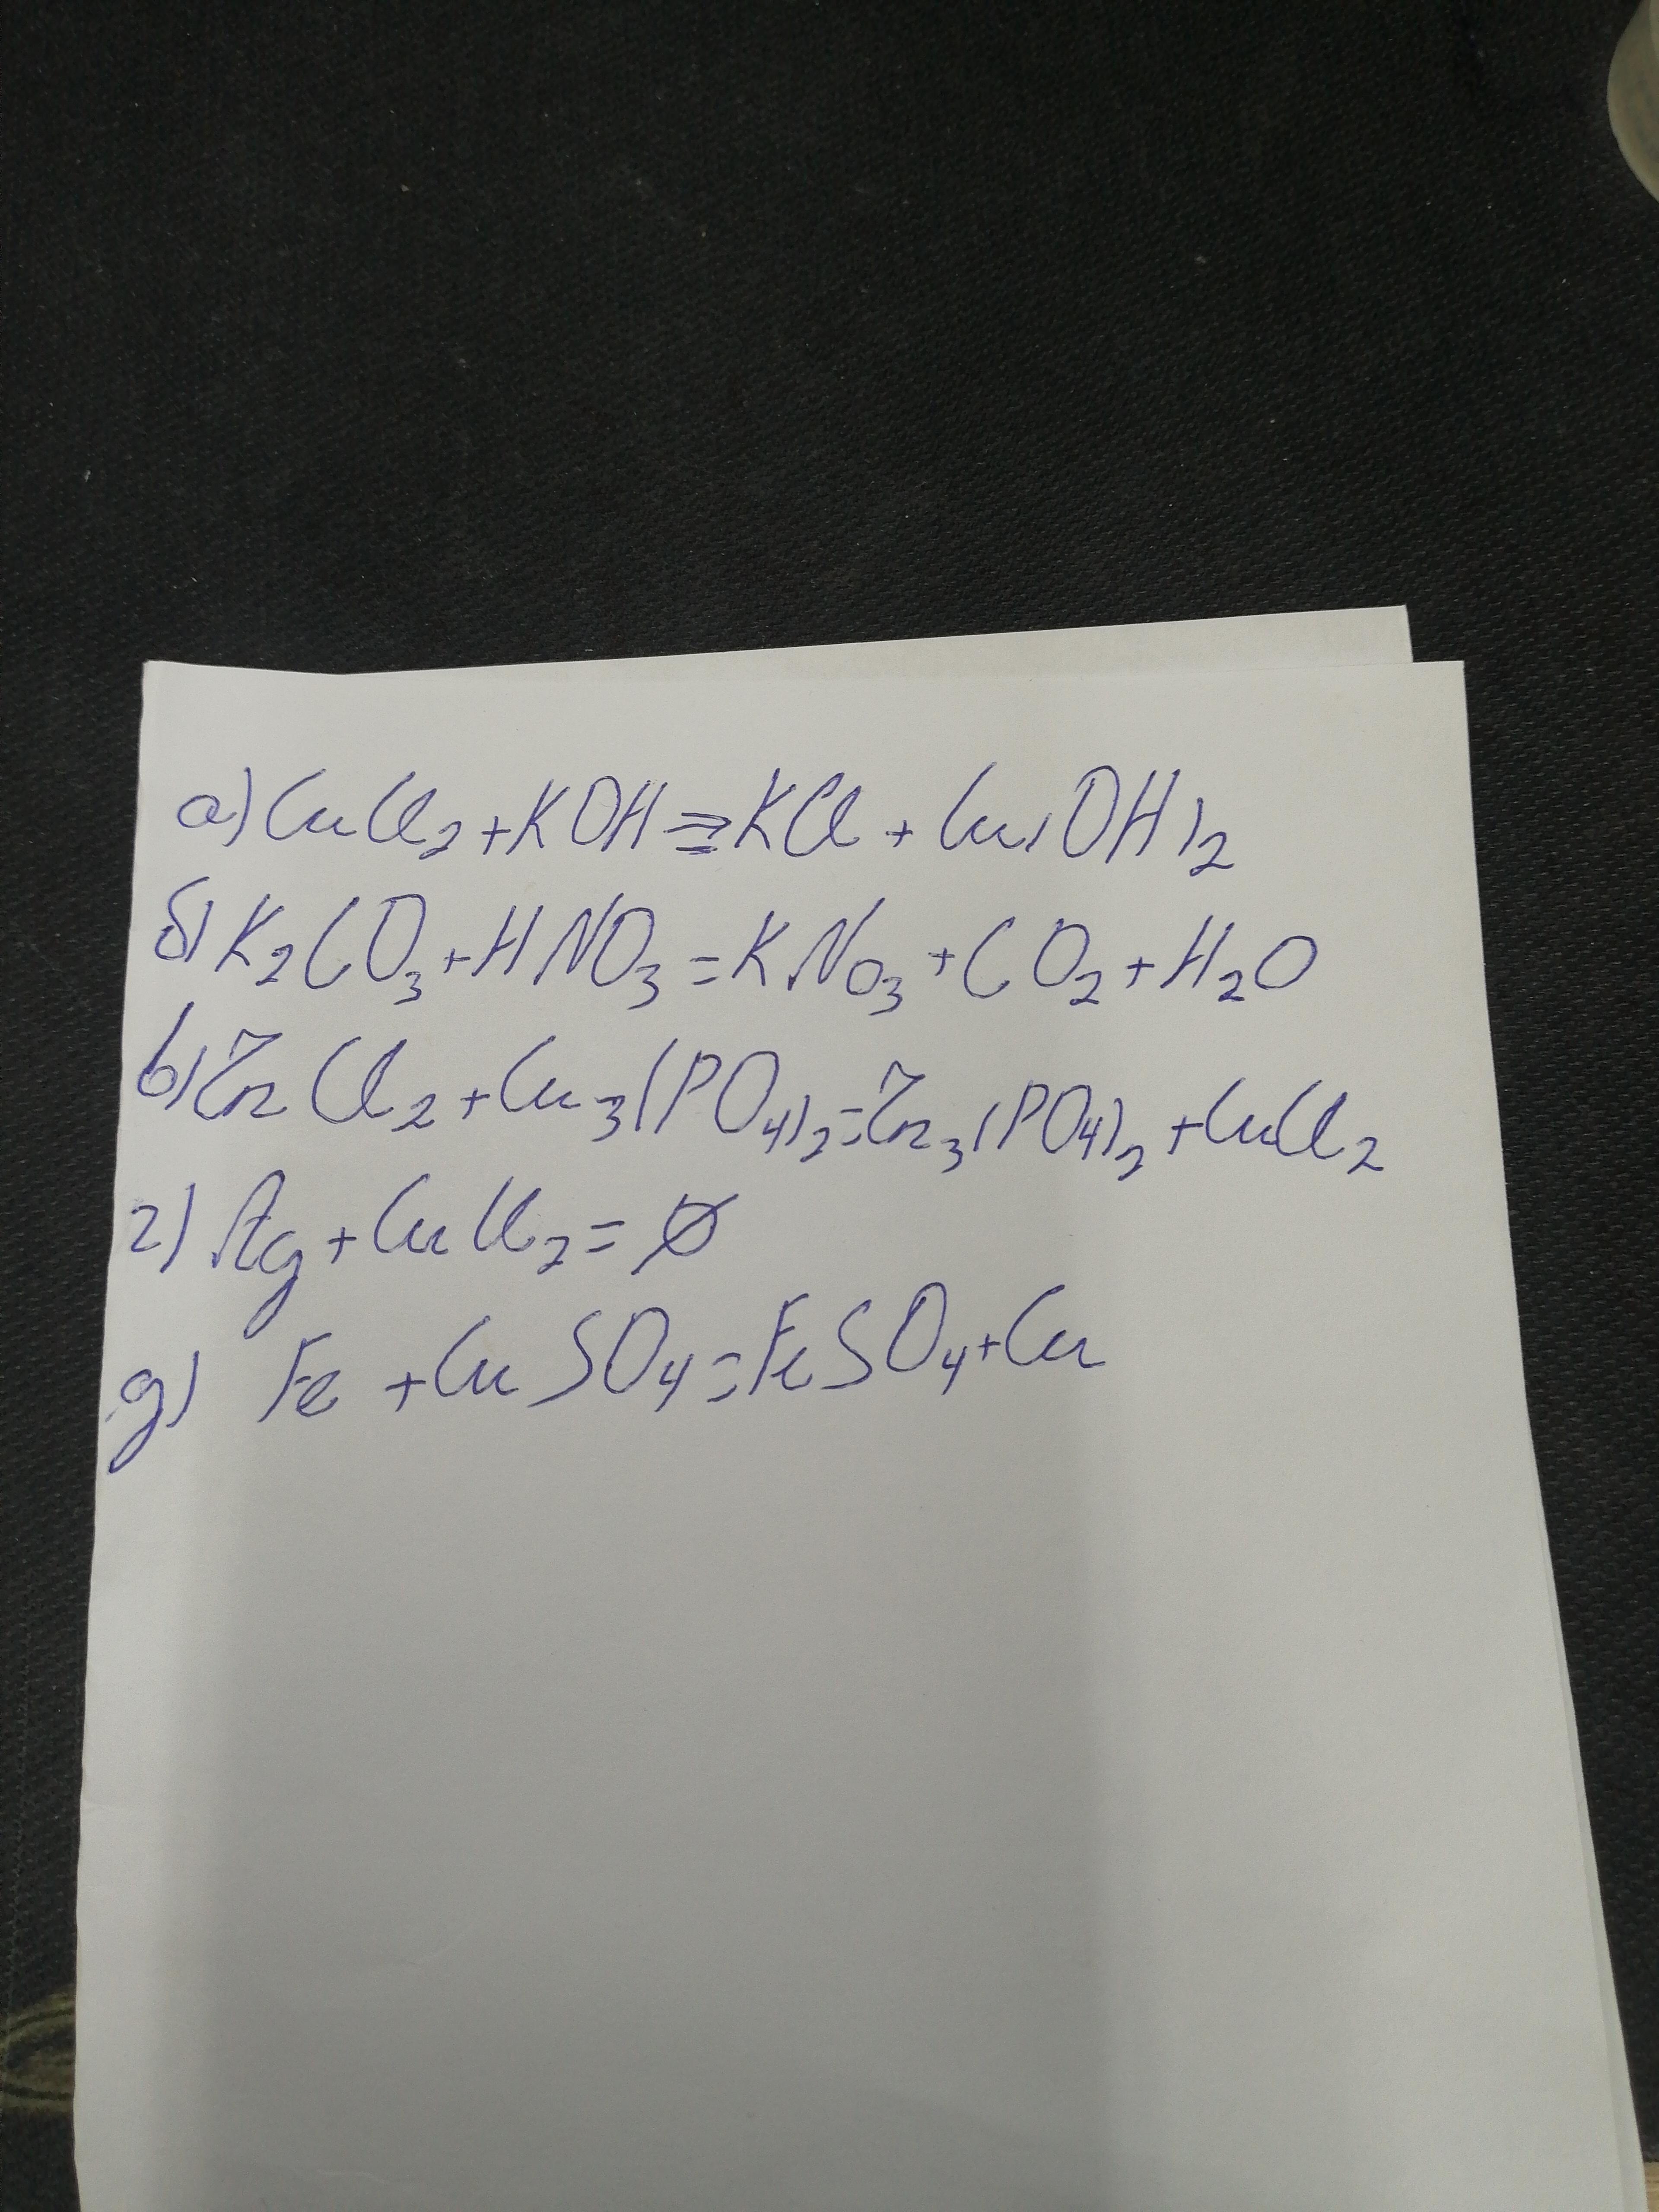 а) CuCl₂ + KOH => KCl + Cu(OH)₂
б) K₂CO₃ + HNO₃ = KNO₃ + CO₂ + H₂O
в) ZnCl₂ + Cu₃(PO₄)₂ = Zn₃(PO₄)₂ + CuCl₂
г) Ag + CuCl₂ = Ø
д) Fe + CuSO₄ = FeSO₄ + Cu